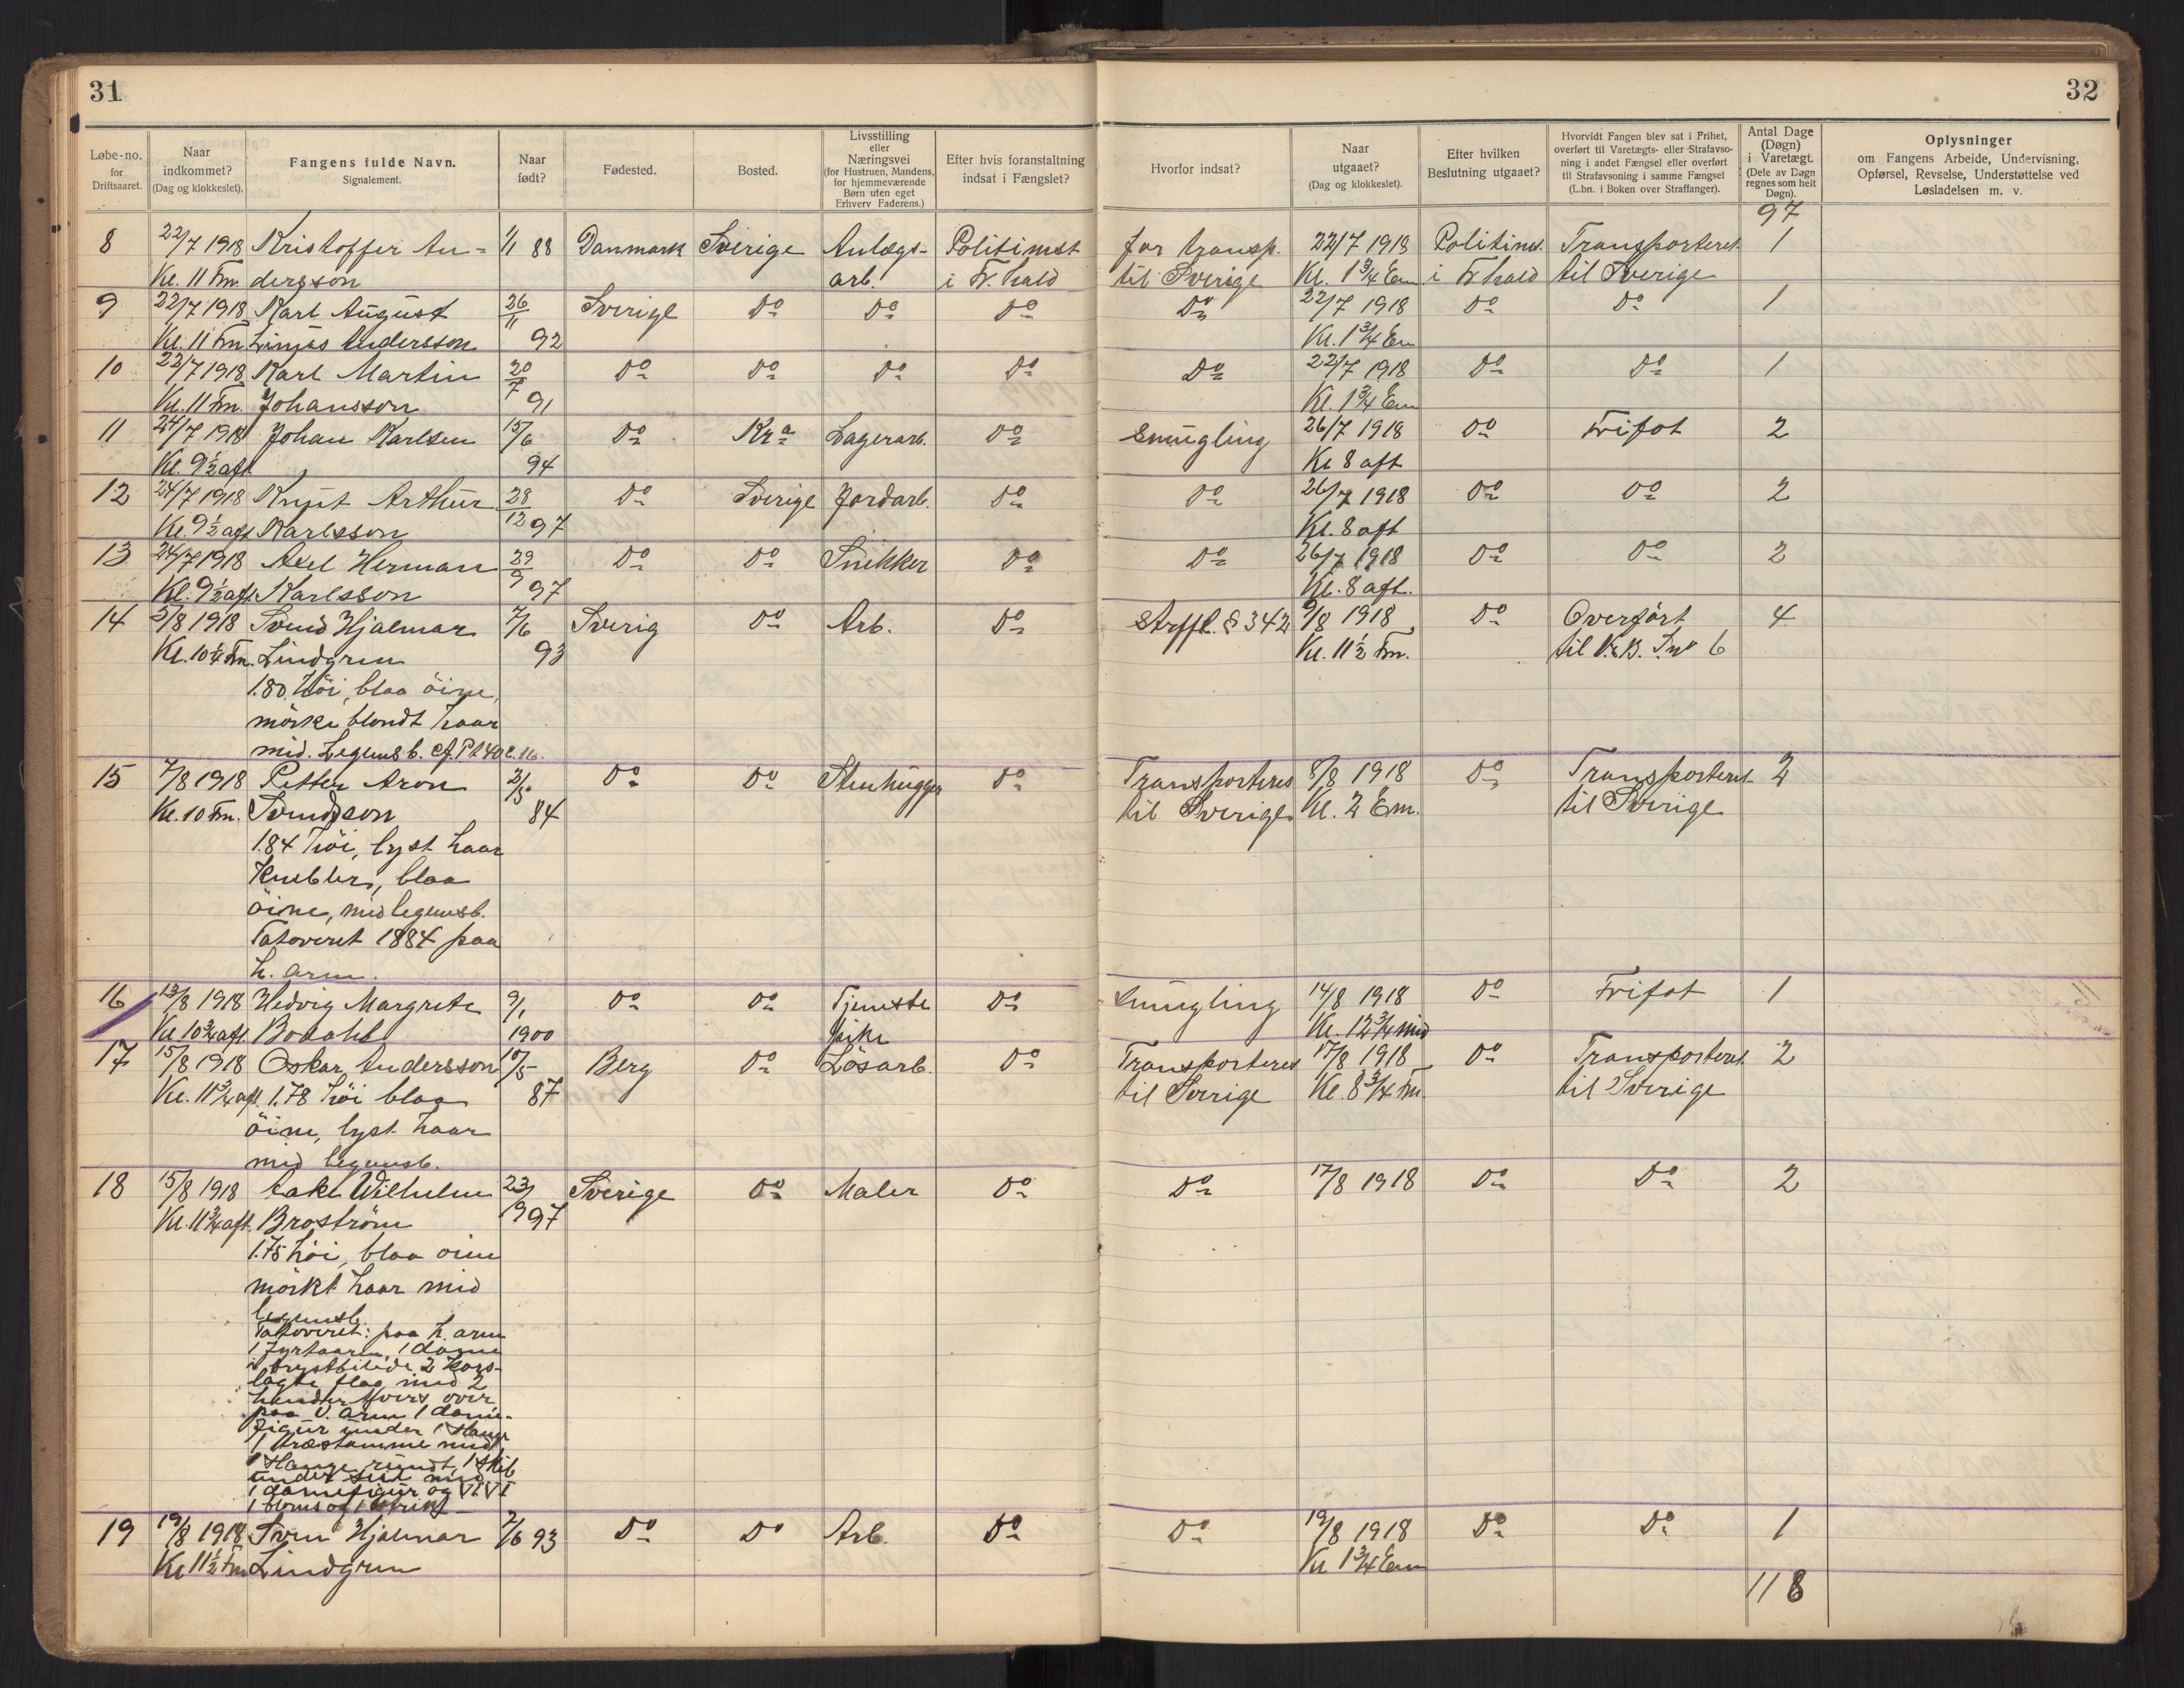 31
32
Løbe-no. for Driftsaaret.
Naar indkommet? (Dag og klokkeslet).
Fangens fulde Navn. Signalement.
Naar født?
Fødested.
Bosted.
Livsstilling eller Næringsvei (for Hustruen, Mandens, for hjemmeværende Børn uten eget Erhverv Faderens.)
Efter hvis foranstaltning indsat i Fængslet?
Hvorfor indsat?
Naar utgaaet? (Dag og klokkeslet).
Efter hvilken Beslutning utgaaet?
Hvorvidt Fangen blev sat i Frihet, overført til Varetægts- eller Strafavsoning i andet Fængsel eller overført til Strafavsoning i samme Fængsel (L.bn. i Boken over Straffanger).
Antal Dage (Døgn) i Varetægt. (Dele av Døgn regnes som helt Døgn).
Oplysninger om Fangens Arbeide, Undervisning, Opførsel, Revselse, Understøttelse ved Løsladelsen m. v.
97
8 22/7 1918 Kristoffer An- 1/1 88 Danmark Sverige Anlægs- Politimst for transp. 22/7 1918 Politimst. Transporteret 1
Kl. 11 Fm. dersson arb. i F.hald til Sverige Kl. 1 3/4 Em i F.hald til Sverige
9 22/7 1918 Karl August 26/11 Sverige Do Do Do Do 22/7 1918 Do Do 1
Kl. 11 Fm. Andersson 92 Kl. 1 3/4 Em
10 22/7 1918 Karl Martin 20/7 Do Do Do Do Do 22/7 1918 Do Do 1
Kl. 11 Fm. Johansson 91 Kl. 1 3/4 Em
11 24/7 1918 Johan Karlsen 15/6 Do Kra Lagerarb. Do Smugling 26/7 1918 Do Frifot 2
Kl. 9 1/2 aft 94 Kl 8 aft
12 24/7 1918 Knut Arthur 28/12 Do Sverige Jordarb. Do Do 26/7 1918 Do Do 2
Kl. 9 1/2 aft Karlsson 97 Kl. 8 aft
13 24/7 1918 Axel Herman 29/9 Do Do Snekker Do Do 26/7 1918 Do Do 2
Kl. 9 1/2 aft. Karlsson 97 Kl. 8 aft.
14 5/8 1918 Svend Hjalmar 7/6 Sverig Do Arb. Do Strffl. § 342 9/8 1918 Do Overført 4
Kl. 10 1/4 Fm. Lindgren 93 Kl. 11 1/2 Fm. til 6
1.80 höi, blaa öine,
mörke blondt haar
mid. Legemsb.
15 7/8 1918 Petter Aron 2/5 Do Do Stenhugger Do Transporteres 8/8 1918 Do Transporteret 2
Kl. 10 Fm. Svendson 84 til Sverige Kl. 2 Em. til Sverige
1.84 höi, lyst haar
Knebler, blaa
öine, mid legemsb.
Tatoveret 1884 paa
h. arm.
16 13/8 1918 Hedvig Margrete 9/1 Do Do Tjeneste Do Smugling 14/8 1918 Do Frifot 1
Kl 10 3/4 aft. 1900 pike Kl. 12 3/4 mid
17 15/8 1918 Oskar Andersson 10/5 Berg Do Lösarb. Do Transporteres 17/8 1918 Do Transporteret 2
Kl. 11 3/4 aft. 1.78 höi blaa 87 til Sverige Kl. 8 3/4 Fm. til Sverige
öine, lyst haar
mid legemsb.
18 15/8 1918 Aake Wilhelm 23/9 Sverige Do Maler Do Do 17/8 1918 Do Do 2
Kl. 11 3/4 aft. Broström 97
1.75 höi, blaa öine
mörkt haar mid
legemsb.
Tatoveret: paa h. arm
1 Fyrtaarn, 1 dame
brystbilede 2 kors-
lagte flag med 2
hender over
paa v. arm 1 dame-
figur under 1 slange
1 træstamme med
1 Slange rundt, 1 skib
under med
1 damefigur og
1 blomst
19 19/8 1918 Sven Hjalmar 7/6 93 Do Do Arb. Do Do 19/8 1918 Do Do 1
Kl 11 1/2 Fm Lindgren Kl 1 3/4 Em
118